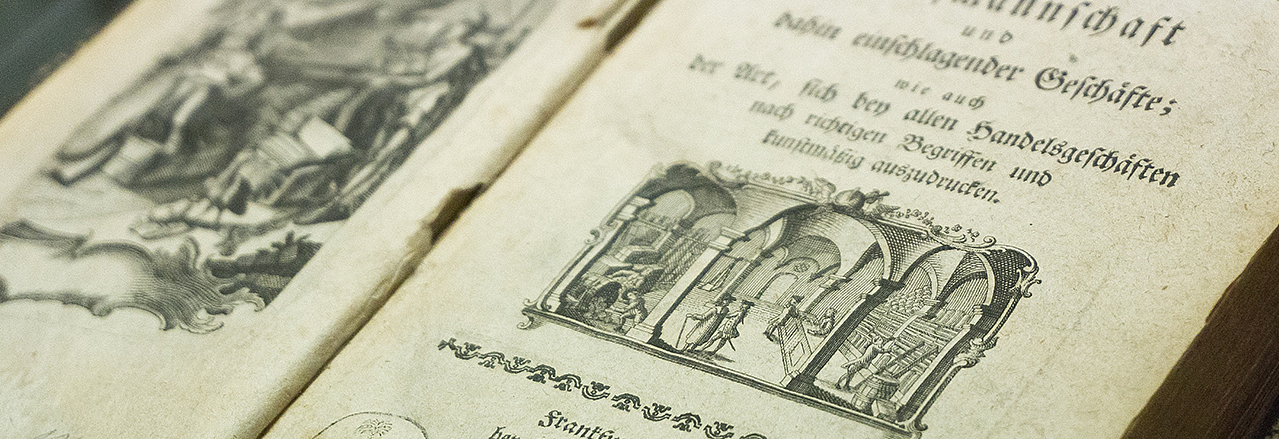 mannschaft
und
dahin einschlagender Geschäfte;
wie auch
der Art, sich bey allen Handelsgeschäften
nach richtigen Begriffen und
kunstmäßig auszudrucken.
Frankfu
bey